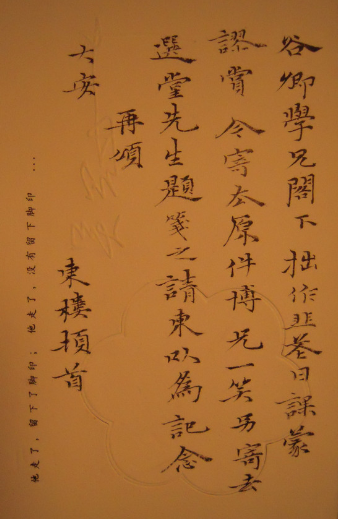 谷卿學兄閣下 拙作韭菴日課蒙
謬賞 今寄太原件博兄一笑另寄去
選堂先生題箋之請柬以為記念
再頌
大安
東樓頓首
他走了，留下了脚印； 他走了，没有留下脚印 ...